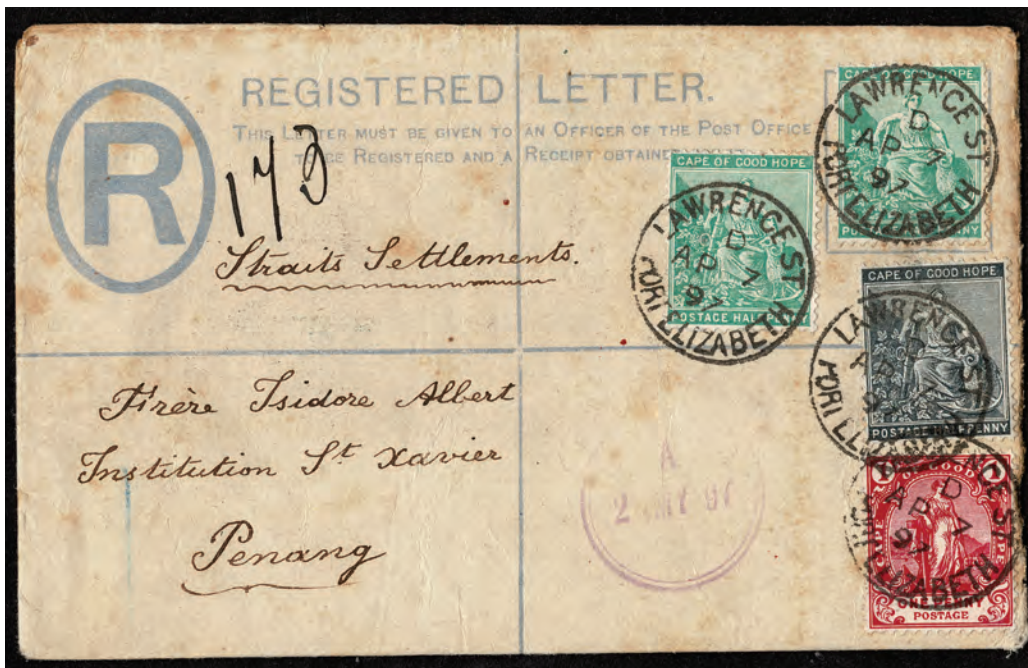 REGISTERED LETTER.
THIS LETTER MUST BE GIVEN TO AN OFFICER OF THE POST OFFICE
TO BE REGISTERED AND A RECEIPT OBTAINED
R
173
Straits Settlements.
Frère Isidore Albert
Institution St Xavier
Penang
CAPE OF GOOD HOPE
LAWRENCE ST
D
AP 7
97
PORT ELIZABETH
CAPE OF GOOD HOPE
POSTAGE HALFPENNY
LAWRENCE ST
D
AP 7
97
PORT ELIZABETH
CAPE OF GOOD HOPE
POSTAGE HALFPENNY
LAWRENCE ST
AP 7
97
PORT ELIZABETH
A
2 MY 97
CAPE OF GOOD HOPE
1
ONE PENNY
POSTAGE
D
AP 7
97
ELIZABETH